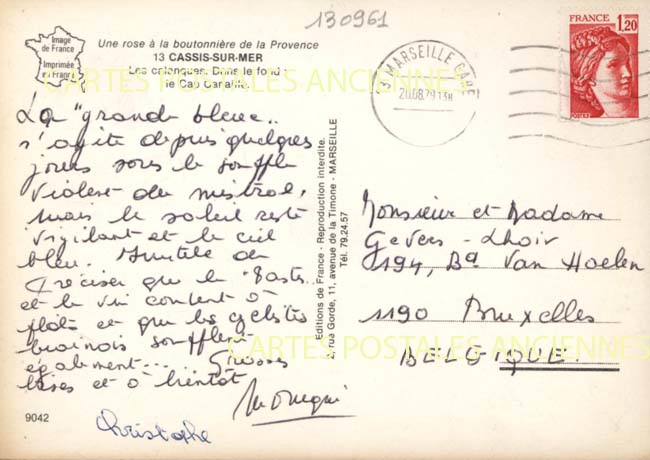 130961
Image
de France
Imprimée
en France
Une rose à la boutonnière de la Provence
13 CASSIS-SUR-MER
Les calanques. Dans le fond :
le Cap Canaille.
MARSEILLE GARE
20.08.79 13H
FRANCE
1,20
POSTES
CARTES POSTALES ANCIENNES
La "grande bleue"
s'agite depuis quelques
jours sous le souffle
violent du mistral,
mais le soleil reste
vigilant et le ciel
bleu. Inutile de
préciser que le
et le vin coulent à
flots et que les cyclistes
soufflent
également.... Grosses
bises et à bientôt
Christophe
9042
Editions de France - Reproduction interdite.
2, rue Gorde, 11, avenue de la Timone - MARSEILLE
Tél. 79.24.57
Monsieur et Madame
Gevers - Lhoir
194, Bd Van Haelen
1190 Bruxelles
BELGIQUE
CARTES POSTALES ANCIENNES